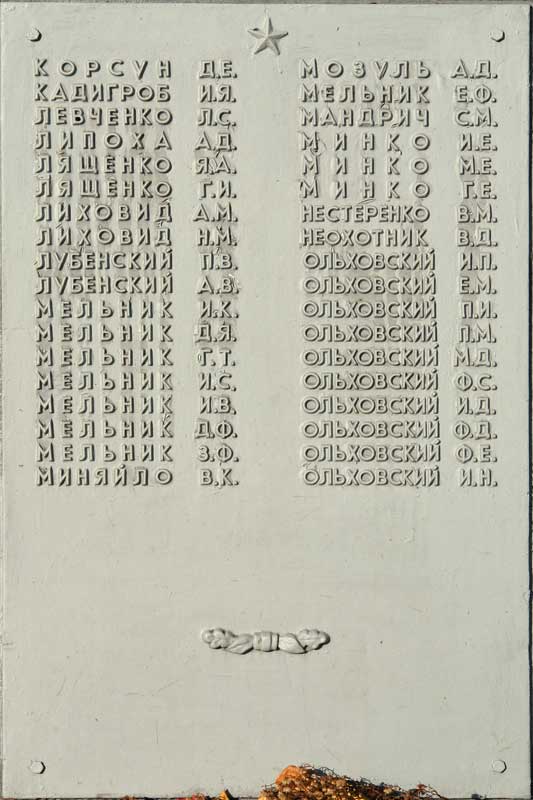 КОРСУН Д.Е.
КАДИГРОБ И.Я.
ЛЕВЧЕНКО Л.С.
ЛИПОХА А.Д.
ЛЯЩЕНКО Я.А.
ЛЯЩЕНКО Г.И.
ЛИХОВИД А.М.
ЛИХОВИД Н.М.
ЛУБЕНСКИЙ П.В.
ЛУБЕНСКИЙ А.В.
МЕЛЬНИК И.К.
МЕЛЬНИК Д.Я.
МЕЛЬНИК Г.Т.
МЕЛЬНИК И.С.
МЕЛЬНИК И.В.
МЕЛЬНИК Д.Ф.
МЕЛЬНИК З.Ф.
МИНЯЙЛО В.К.
МОЗУЛЬ А.Д.
МЕЛЬНИК Е.Ф.
МАНДРИЧ С.М.
МИНКО И.Е.
МИНКО М.Е.
МИНКО Г.Е.
НЕСТЕРЕНКО В.М.
НЕОХОТНИК В.Д.
ОЛЬХОВСКИЙ И.П.
ОЛЬХОВСКИЙ Е.М.
ОЛЬХОВСКИЙ П.И.
ОЛЬХОВСКИЙ П.М.
ОЛЬХОВСКИЙ М.Д.
ОЛЬХОВСКИЙ Ф.С.
ОЛЬХОВСКИЙ И.Д.
ОЛЬХОВСКИЙ Ф.Д.
ОЛЬХОВСКИЙ Ф.Е.
ОЛЬХОВСКИЙ И.Н.